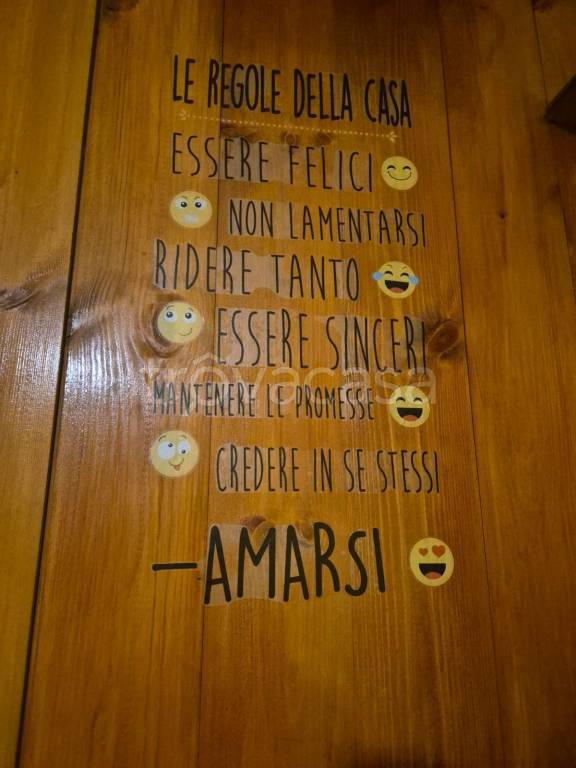 LE REGOLE DELLA CASA
ESSERE FELICI
NON LAMENTARSI
RIDERE TANTO
ESSERE SINCERI
trovacasa
MANTENERE LE PROMESSE
CREDERE IN SE STESSI
–AMARSI